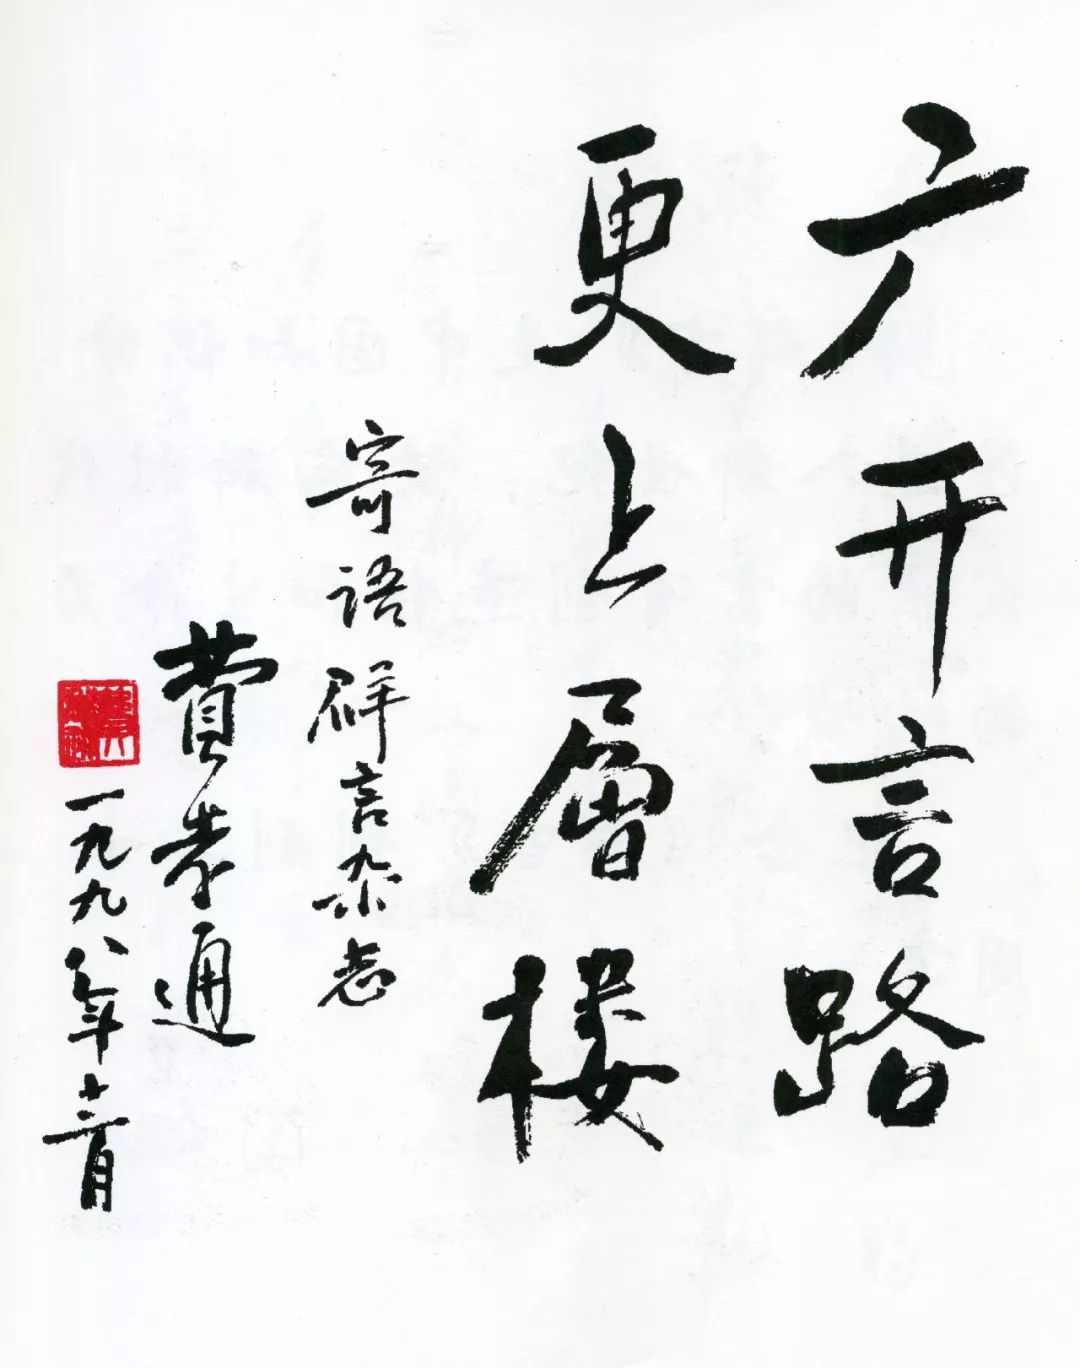 广开言路
更上層楼
寄语群言杂志
費孝通
一九九八年十二月